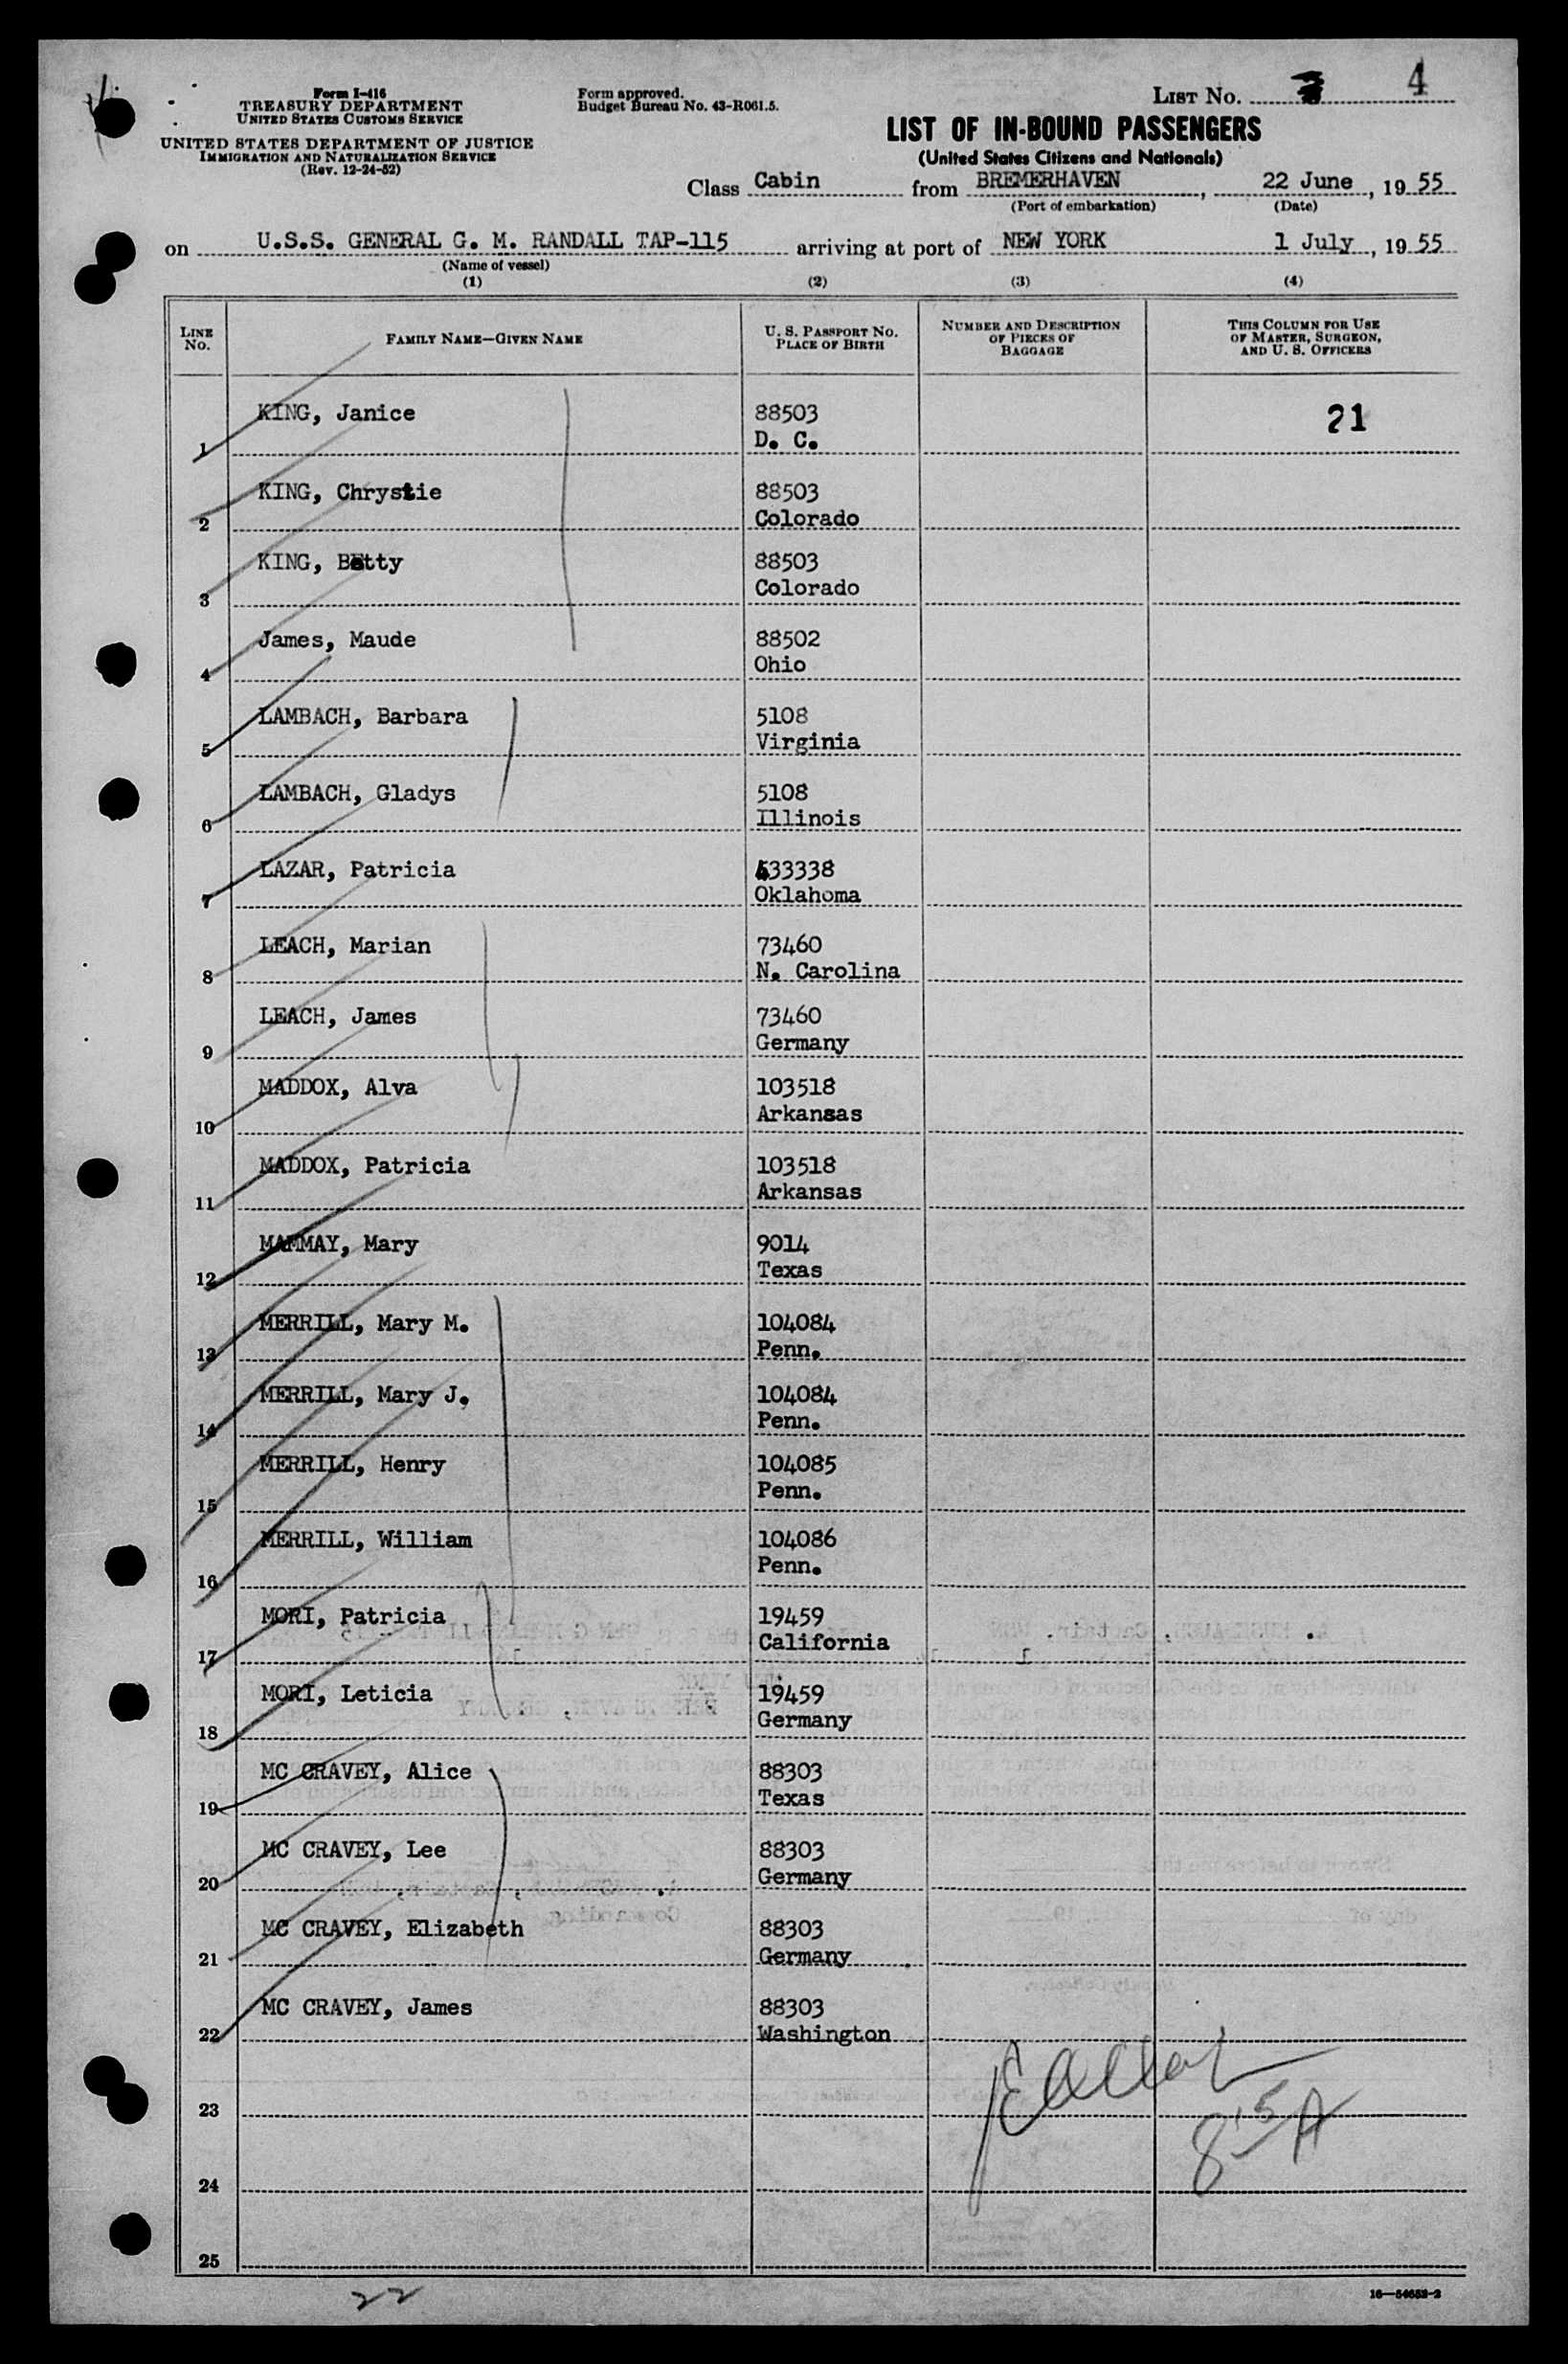 Form I-416
TREASURY DEPARTMENT
UNITED STATES CUSTOMS SERVICE
UNITED STATES DEPARTMENT OF JUSTICE
IMMIGRATION AND NATURALIZATION SERVICE
(Rev. 12-24-52)
Form approved.
Budget Bureau No. 43-R061.5.
LIST NO. 4
LIST OF IN-BOUND PASSENGERS
(United States Citizens and Nationals)
Class Cabin from BREMERHAVEN, 22 June, 1955
(Port of embarkation) (Date)
on U.S.S. GENERAL G. M. RANDALL TAP-115 arriving at port of NEW YORK 1 July, 1955
(Name of vessel)
(1) (2) (3) (4)
LINE NO.
FAMILY NAME—GIVEN NAME
U. S. PASSPORT NO.
PLACE OF BIRTH
NUMBER AND DESCRIPTION
OF PIECES OF
BAGGAGE
THIS COLUMN FOR USE
OF MASTER, SURGEON,
AND U. S. OFFICERS
KING, Janice 88503 21
1 D. C.
KING, Chrystie 88503
2 Colorado
KING, Betty 88503
3 Colorado
James, Maude 88502
4 Ohio
LAMBACH, Barbara 5108
5 Virginia
LAMBACH, Gladys 5108
6 Illinois
LAZAR, Patricia 33338
7 Oklahoma
LEACH, Marian 73460
8 N. Carolina
LEACH, James 73460
9 Germany
MADDOX, Alva 103518
10 Arkansas
MADDOX, Patricia 103518
11 Arkansas
MAMMAY, Mary 9014
12 Texas
MERRILL, Mary M. 104084
13 Penn.
MERRILL, Mary J. 104084
14 Penn.
MERRILL, Henry 104085
15 Penn.
MERRILL, William 104086
16 Penn.
MORI, Patricia 19459
17 California
MORI, Leticia 19459
18 Germany
MC CRAVEY, Alice 88303
19 Texas
MC CRAVEY, Lee 88303
20 Germany
MC CRAVEY, Elizabeth 88303
21 Germany
MC CRAVEY, James 88303
22 Washington
23
24
25
22
16—54653-2